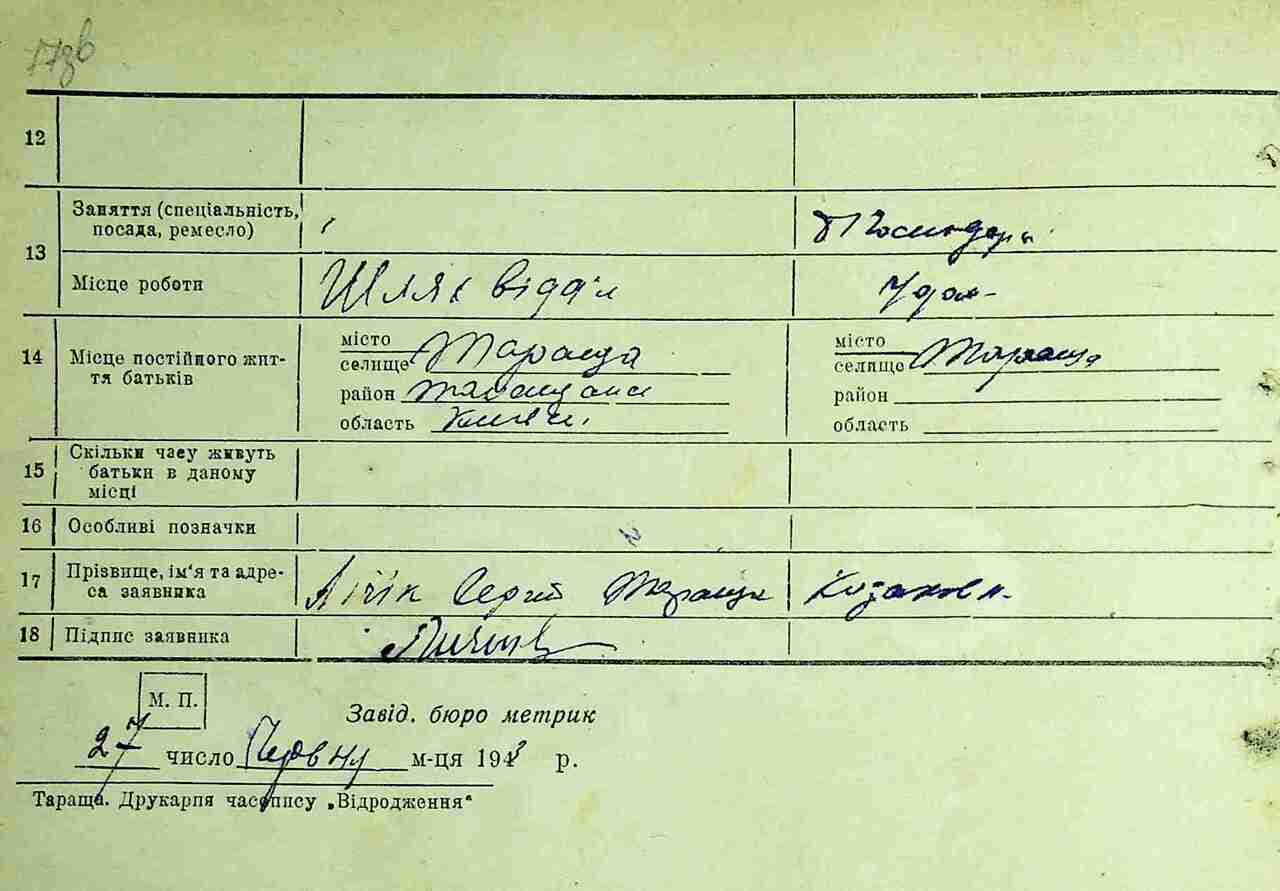 12
13 Заняття (спеціальність,
посада, ремесло)
Місце роботи Шлях відділ
14 Місце постійного жит-
тя батьків
місто
селище Тараща
район
область
місто
селище Тараща
район
область
15 Скільки часу живуть
батьки в даному
місці
16 Особливі позначки
17 Прізвище, ім'я та адре-
са заявника Лічік Сергій Тараща
18 Підпис заявника
М. П.
Завід. бюро метрик
27 число Червня м-ця 1943 р.
Тараща. Друкарня часопису „Відродження“